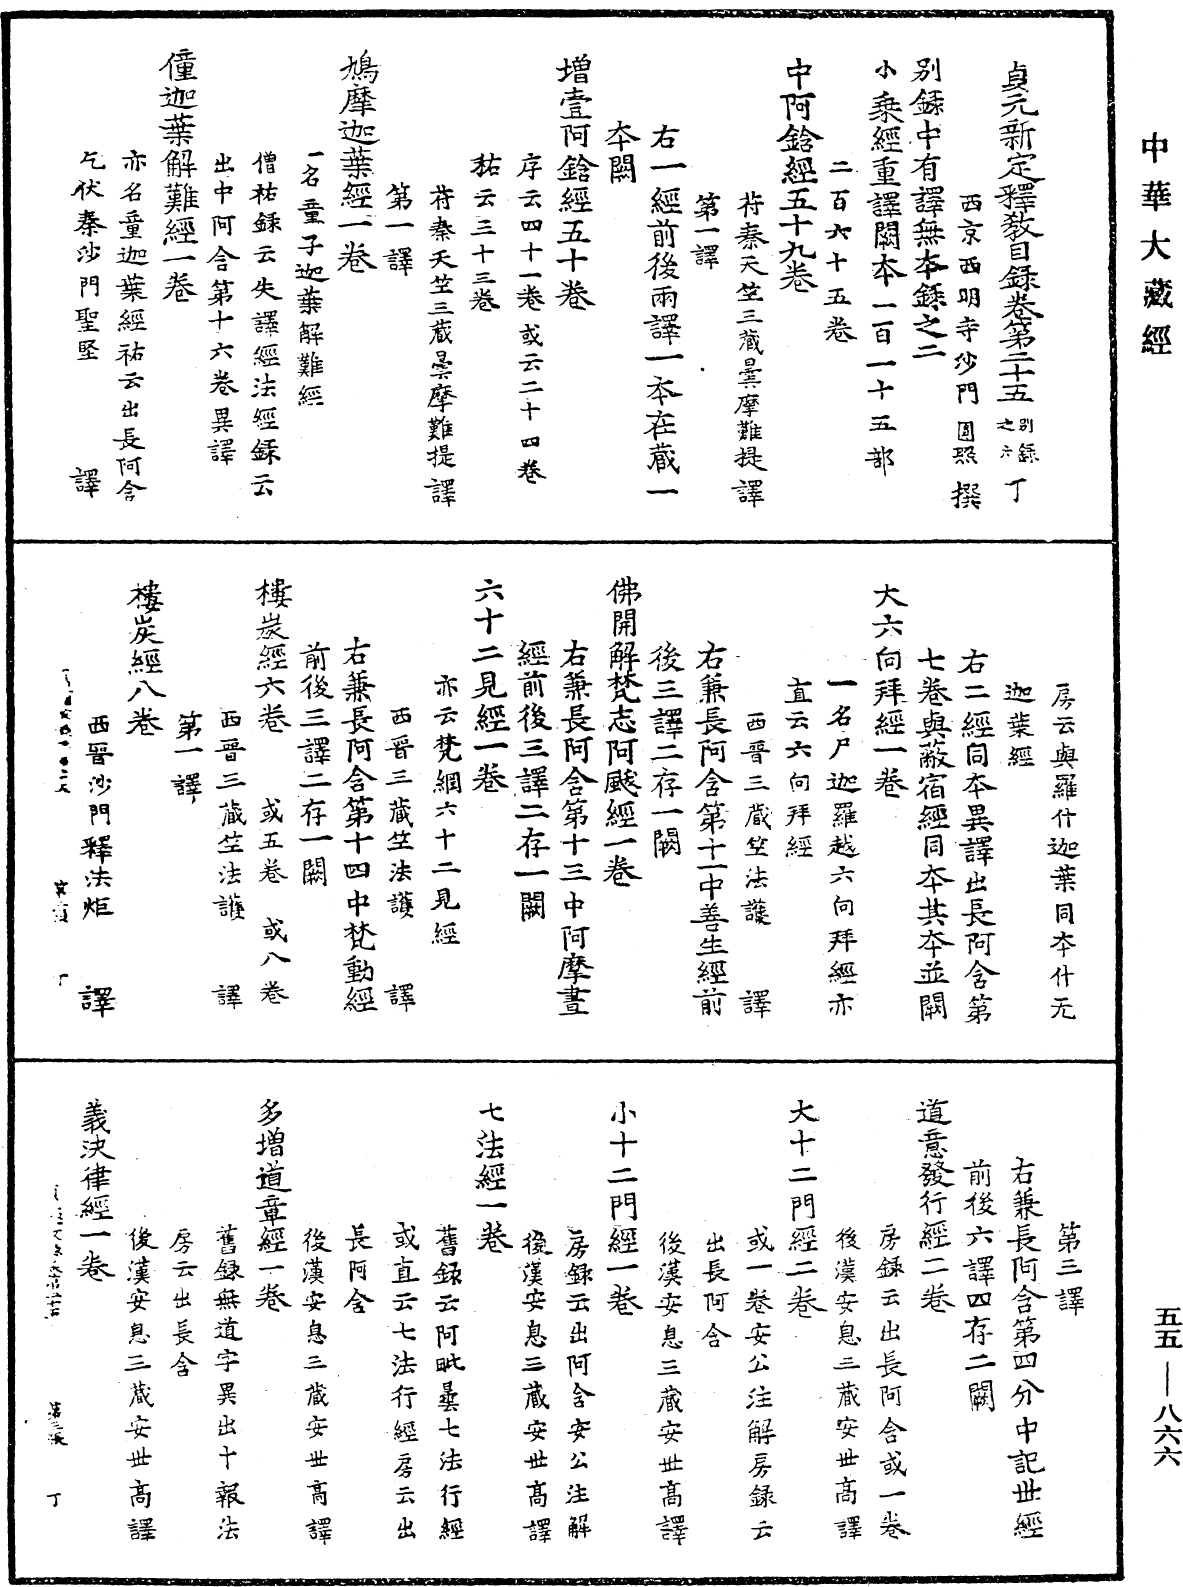 中華大藏經
貞元新定釋教目録卷第二十五 别録之六 丁
西京西明寺沙門圓照撰
别録中有譯無本録之二
小乘經重譯闕本一百一十五部
二百六十五卷
中阿鋡經五十九卷
苻秦天竺三藏曇摩難提譯
第一譯
右一經前後兩譯一本在藏一
本闕
增壹阿鋡經五十卷
序云四十一卷或云二十四卷
祐云三十三卷
苻秦天竺三藏曇摩難提譯
第一譯
鳩摩迦葉經一卷
一名童子迦葉解難經
僧祐録云失譯經法經録云
出中阿含第十六卷異譯
僮迦葉解難經一卷
亦名童迦葉經祐云出長阿含
乞伏秦沙門聖堅 譯
房云與羅什迦葉同本什无
迦葉經
右二經同本異譯出長阿含第
七卷與蔽宿經同本其本並闕
大六向拜經一卷
一名尸迦羅越六向拜經亦
直云六向拜經
西晉三藏竺法護 譯
右兼長阿含第十一中善生經前
後三譯二存一闕
佛開解梵志阿颰經一卷
右兼長阿含第十三中阿摩晝
經前後三譯二存一闕
六十二見經一卷
亦云梵網六十二見經
西晋三藏竺法護 譯
右兼長阿含第十四中梵動經
前後三譯二存一闕
樓炭經六卷 或五卷 或八卷
西晋三藏竺法護 譯
第一譯
樓炭經八卷
西晉沙門釋法炬 譯
丁
第三譯
右兼長阿含第四分中記世經
前後六譯四存二闕
道意發行經二卷
房録云出長阿含或一卷
後漢安息三藏安世高譯
大十二門經二卷
或一卷安公注解房録云
出長阿含
後漢安息三藏安世高譯
小十二門經一卷
房録云出阿含安公注解
後漢安息三藏安世高譯
七法經一卷
舊録云阿毗曇七法行經
或直云七法行經房云出
長阿含
後漢安息三藏安世高譯
多增道章經一卷
舊録無道字異出十報法
房云出長含
後漢安息三藏安世高譯
義決律經一卷
丁
五五—八六六